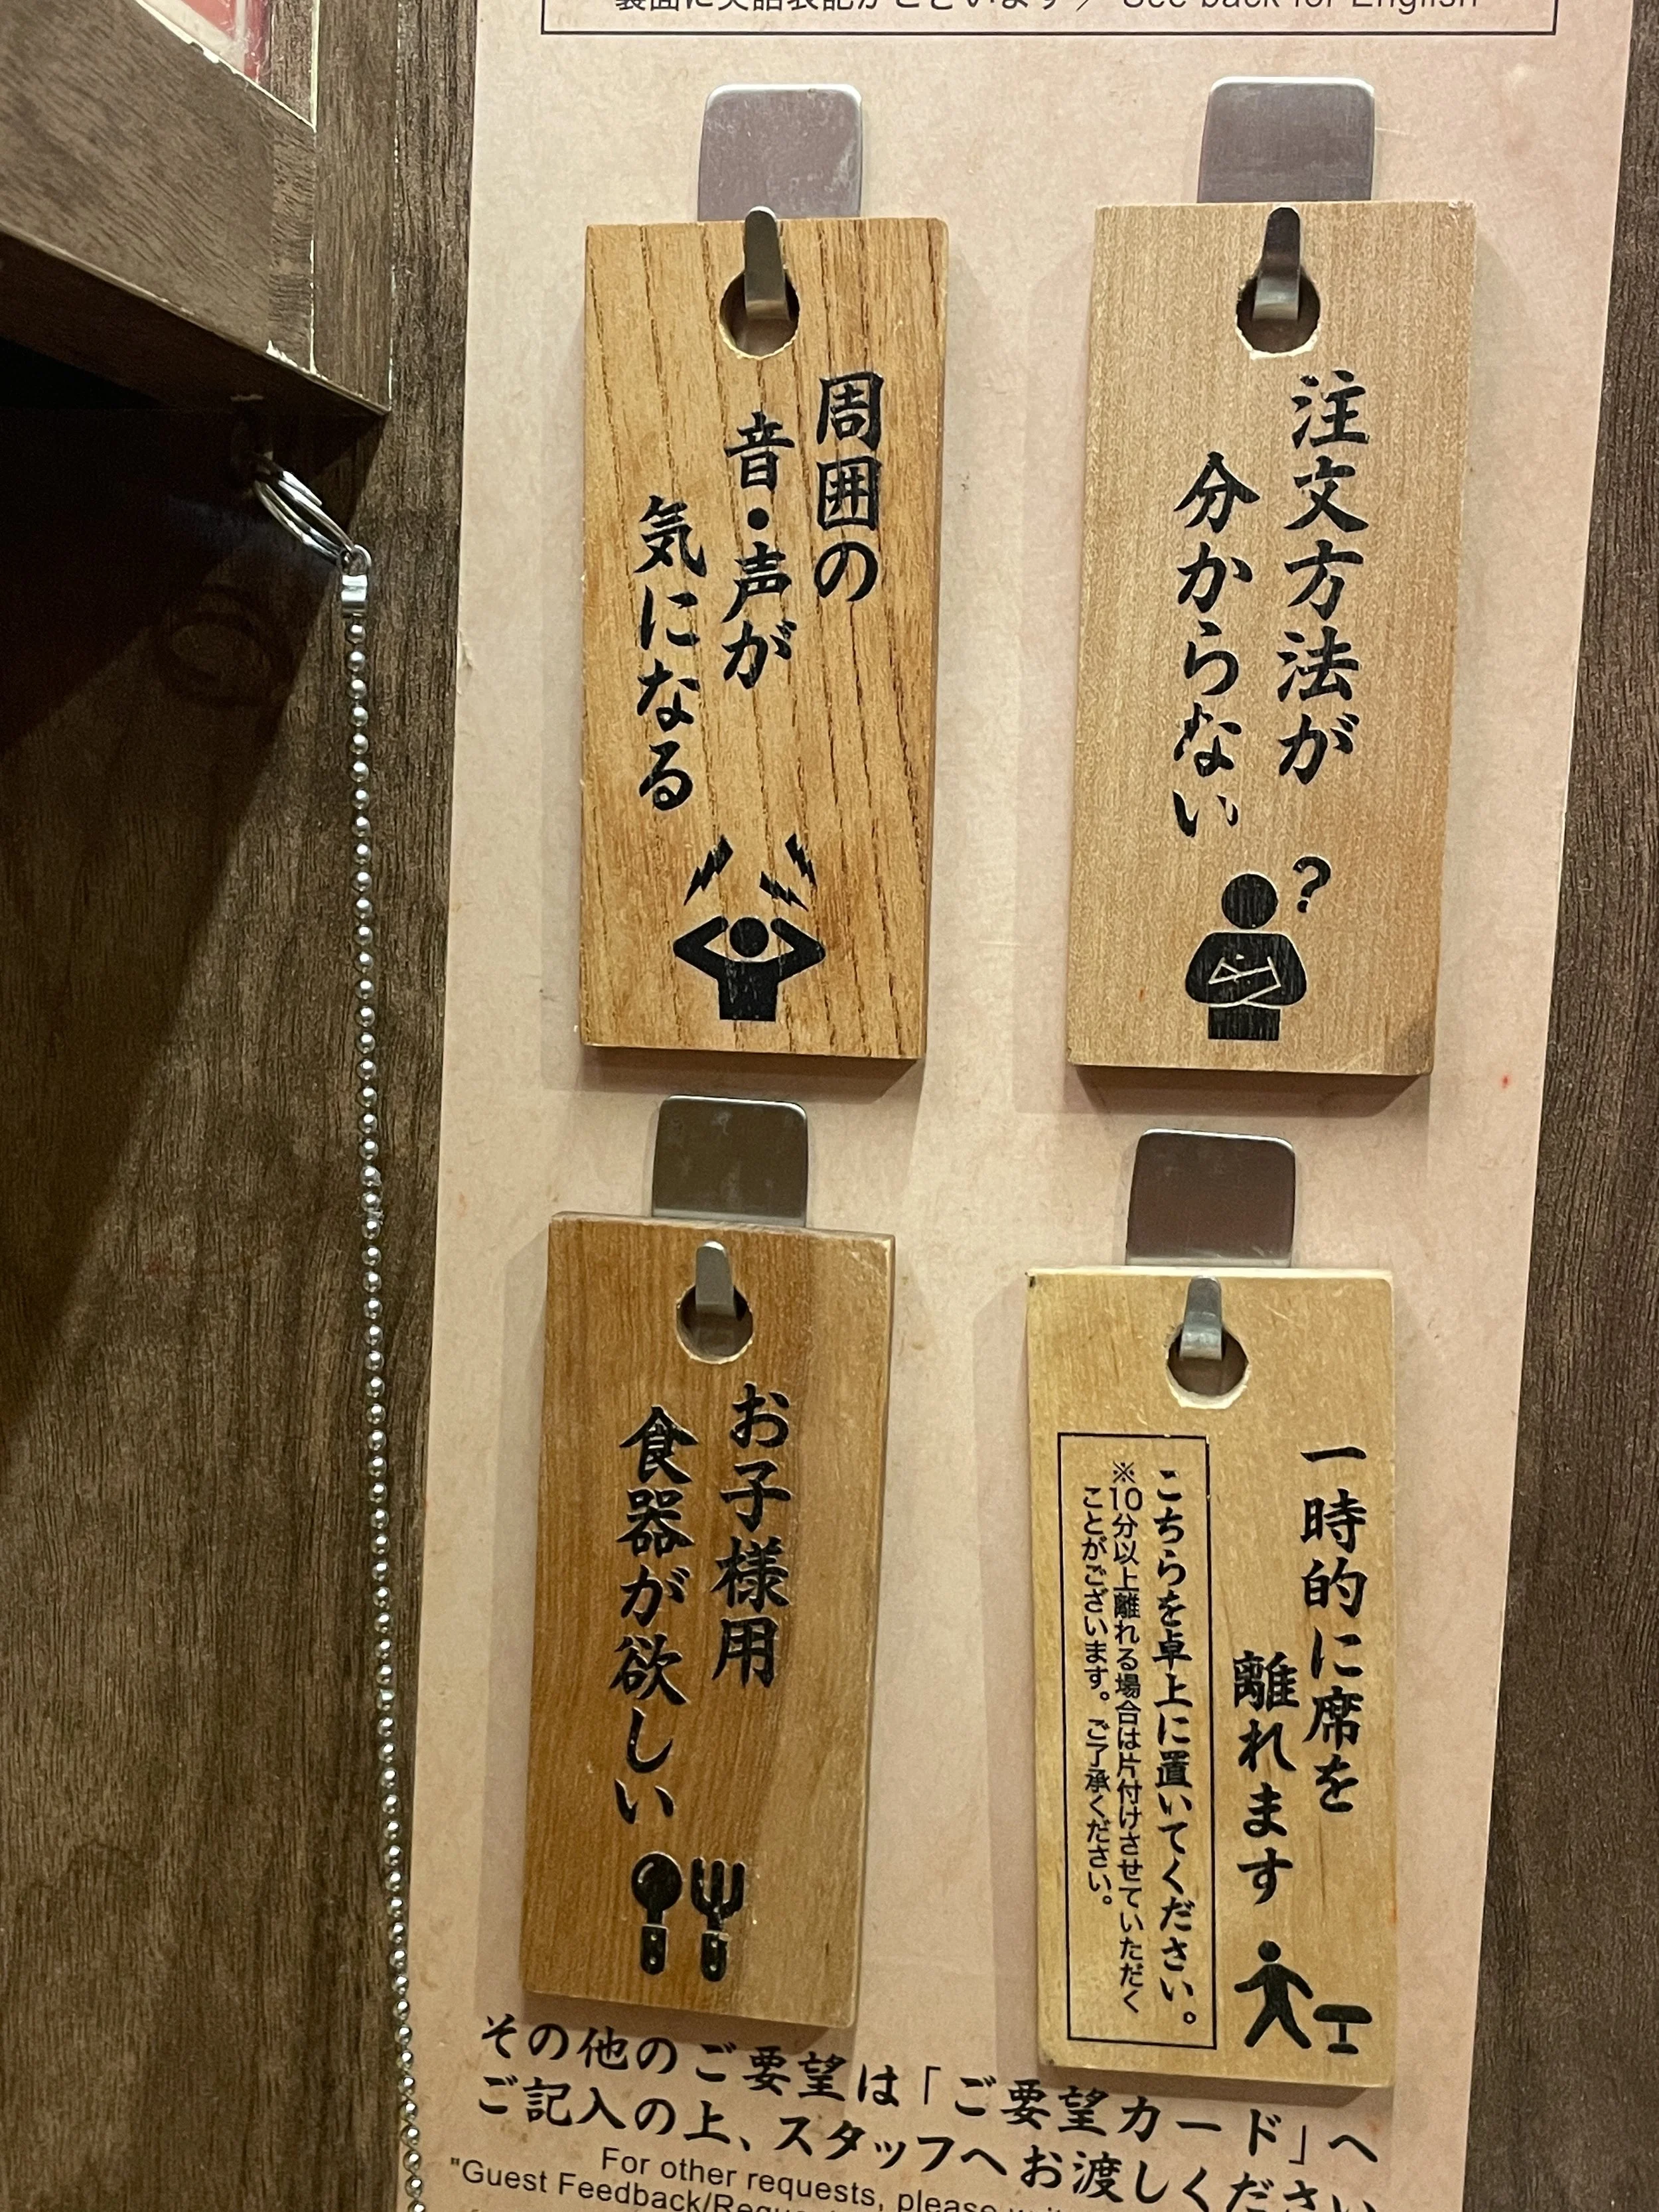 裏面に英語表記がございます／ See back for English
周囲の
音・声が
気になる
注文方法が
分からない
?
お子様用
食器が欲しい
一時的に席を
離れます
こちらを卓上に置いてください。
※10分以上離れる場合は片付けさせていただく
ことがございます。ご了承ください。
その他のご要望は「ご要望カード」へ
ご記入の上、スタッフへお渡しください
For other requests, please
"Guest Feedback/